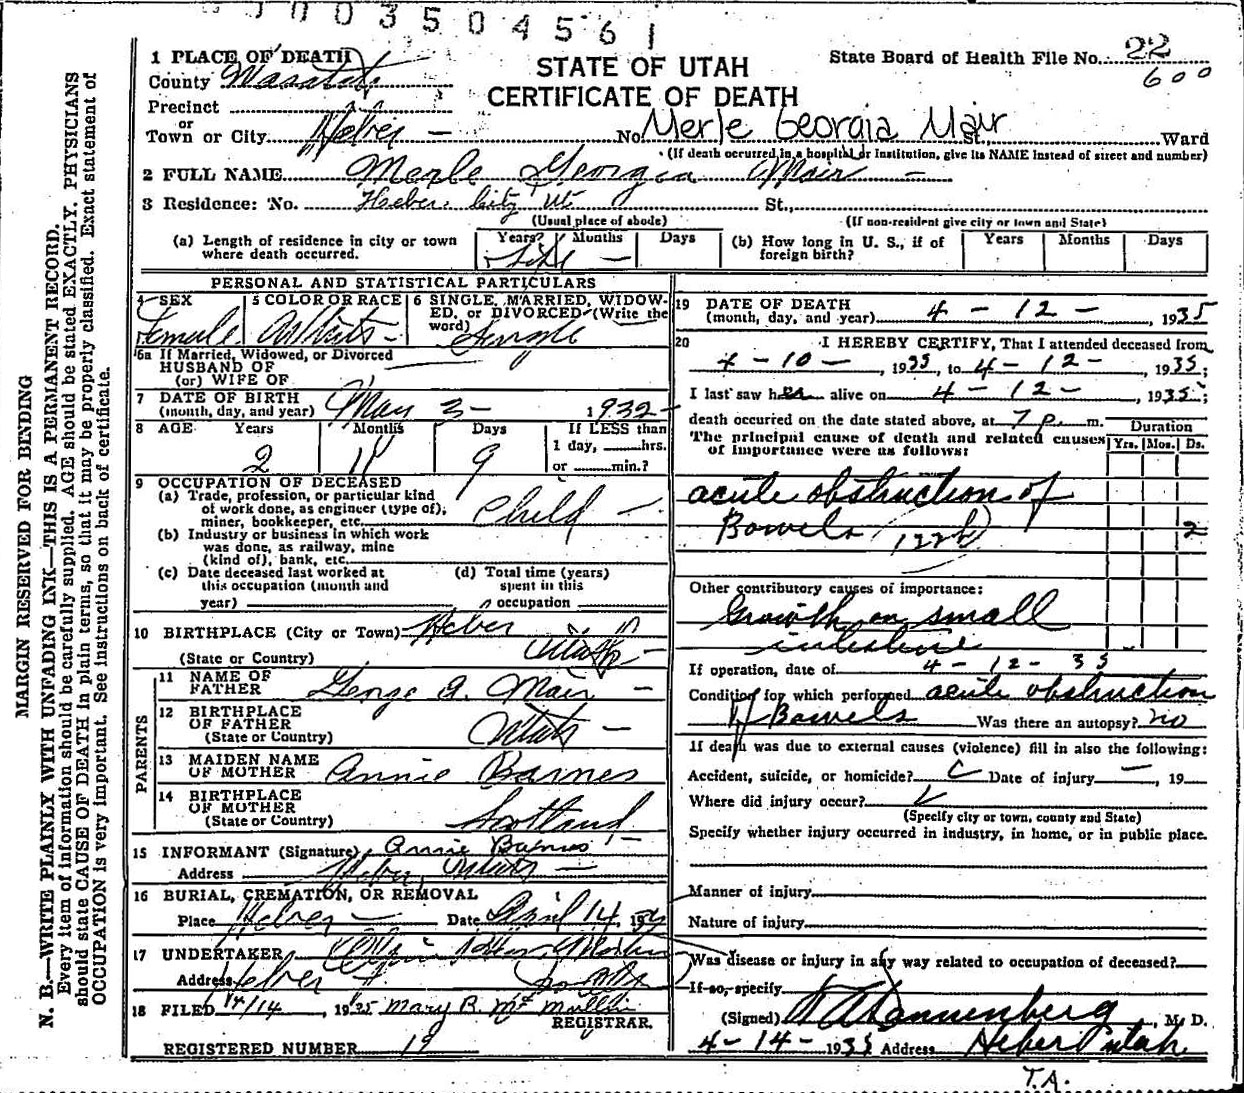 0 0 0 3 5 0 4 5 6 1
MARGIN RESERVED FOR BINDING
N. B.—WRITE PLAINLY WITH UNFADING INK—THIS IS A PERMANENT RECORD.
Every item of information should be carefully supplied. AGE should be stated EXACTLY. PHYSICIANS
should state CAUSE OF DEATH in plain terms, so that it may be properly classified. Exact statement of
OCCUPATION is very important. See instructions on back of certificate.
STATE OF UTAH
CERTIFICATE OF DEATH
State Board of Health File No. 22
600
1 PLACE OF DEATH
County Wasatch
Precinct
or
Town or City Heber — No. Merle Georgia Mair St., Ward
(If death occurred in a hospital or institution, give its NAME instead of street and number)
2 FULL NAME Merle Georgia Mair —
3 Residence: No. Heber City Ut St.,
(Usual place of abode) (If non-resident give city or town and State)
(a) Length of residence in city or town where death occurred. Years? Months Days
Life —
(b) How long in U. S., if of foreign birth? Years Months Days
PERSONAL AND STATISTICAL PARTICULARS
4 SEX Female
5 COLOR OR RACE White
6 SINGLE, MARRIED, WIDOWED, or DIVORCED (Write the word) Single
6a If Married, Widowed, or Divorced
HUSBAND OF
(or) WIFE OF
7 DATE OF BIRTH
(month, day, and year) May 3 - 1932 -
8 AGE Years Months Days If LESS than
1 day, hrs.
2 11 9 or min.?
9 OCCUPATION OF DECEASED
(a) Trade, profession, or particular kind
of work done, as engineer (type of),
miner, bookkeeper, etc. Child —
(b) Industry or business in which work
was done, as railway, mine
(kind of), bank, etc.
(c) Date deceased last worked at
this occupation (month and
year)
(d) Total time (years)
spent in this
occupation
10 BIRTHPLACE (City or Town) Heber
(State or Country) Utah —
PARENTS
11 NAME OF
FATHER George A. Mair —
12 BIRTHPLACE
OF FATHER
(State or Country) Utah —
13 MAIDEN NAME
OF MOTHER Annie Barnes
14 BIRTHPLACE
OF MOTHER
(State or Country) Scotland
15 INFORMANT (Signature) Annie Barnes —
Address Heber, Utah —
16 BURIAL, CREMATION, OR REMOVAL
Place Heber — Date April 14, 19
17 UNDERTAKER
Address Heber
18 FILED 4/14, 1935 Mary R. McMullin
REGISTRAR.
REGISTERED NUMBER 19
19 DATE OF DEATH
(month, day, and year) 4 - 12 -, 1935
20 I HEREBY CERTIFY, That I attended deceased from
4 - 10 -, 1935, to 4 - 12 -, 1935;
I last saw her alive on 4 - 12 -, 1935;
death occurred on the date stated above, at 7 p. m.
Duration
The principal cause of death and related causes
of importance were as follows:
Yrs. Mos. Ds.
acute obstruction of
Bowels 122b 2
Other contributory causes of importance:
Growth on small
intestine
If operation, date of 4 - 12 - 35
Condition for which performed acute obstruction
of Bowels Was there an autopsy? no
If death was due to external causes (violence) fill in also the following:
Accident, suicide, or homicide? Date of injury —, 19
Where did injury occur?
(Specify city or town, county and State)
Specify whether injury occurred in industry, in home, or in public place.
Manner of injury
Nature of injury
Was disease or injury in any way related to occupation of deceased?
If so, specify
(Signed) Dannenberg, M. D.
4 - 14 - 1935 Address Heber Utah
T.A.